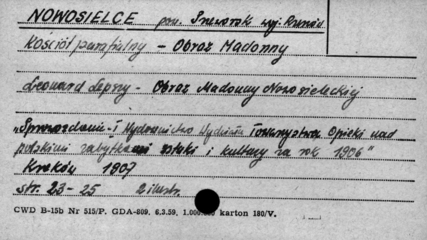 NOWOSIELCE pow. Przeworsk woj. Rzeszów
Kościół parafialny - Obraz Madonny
Leonard Lepszy - Obraz Madonny Nowosieleckiej
"Sprawozdanie i Wydawnictwo Wydziału Towarzystwa Opieki nad
polskimi zabytkami sztuki i kultury za rok 1906"
Kraków 1907
str. 23-25 2 ilustr.
CWD B-15b Nr 515/P. GDA-809. 6.3.59. karton 180/V.